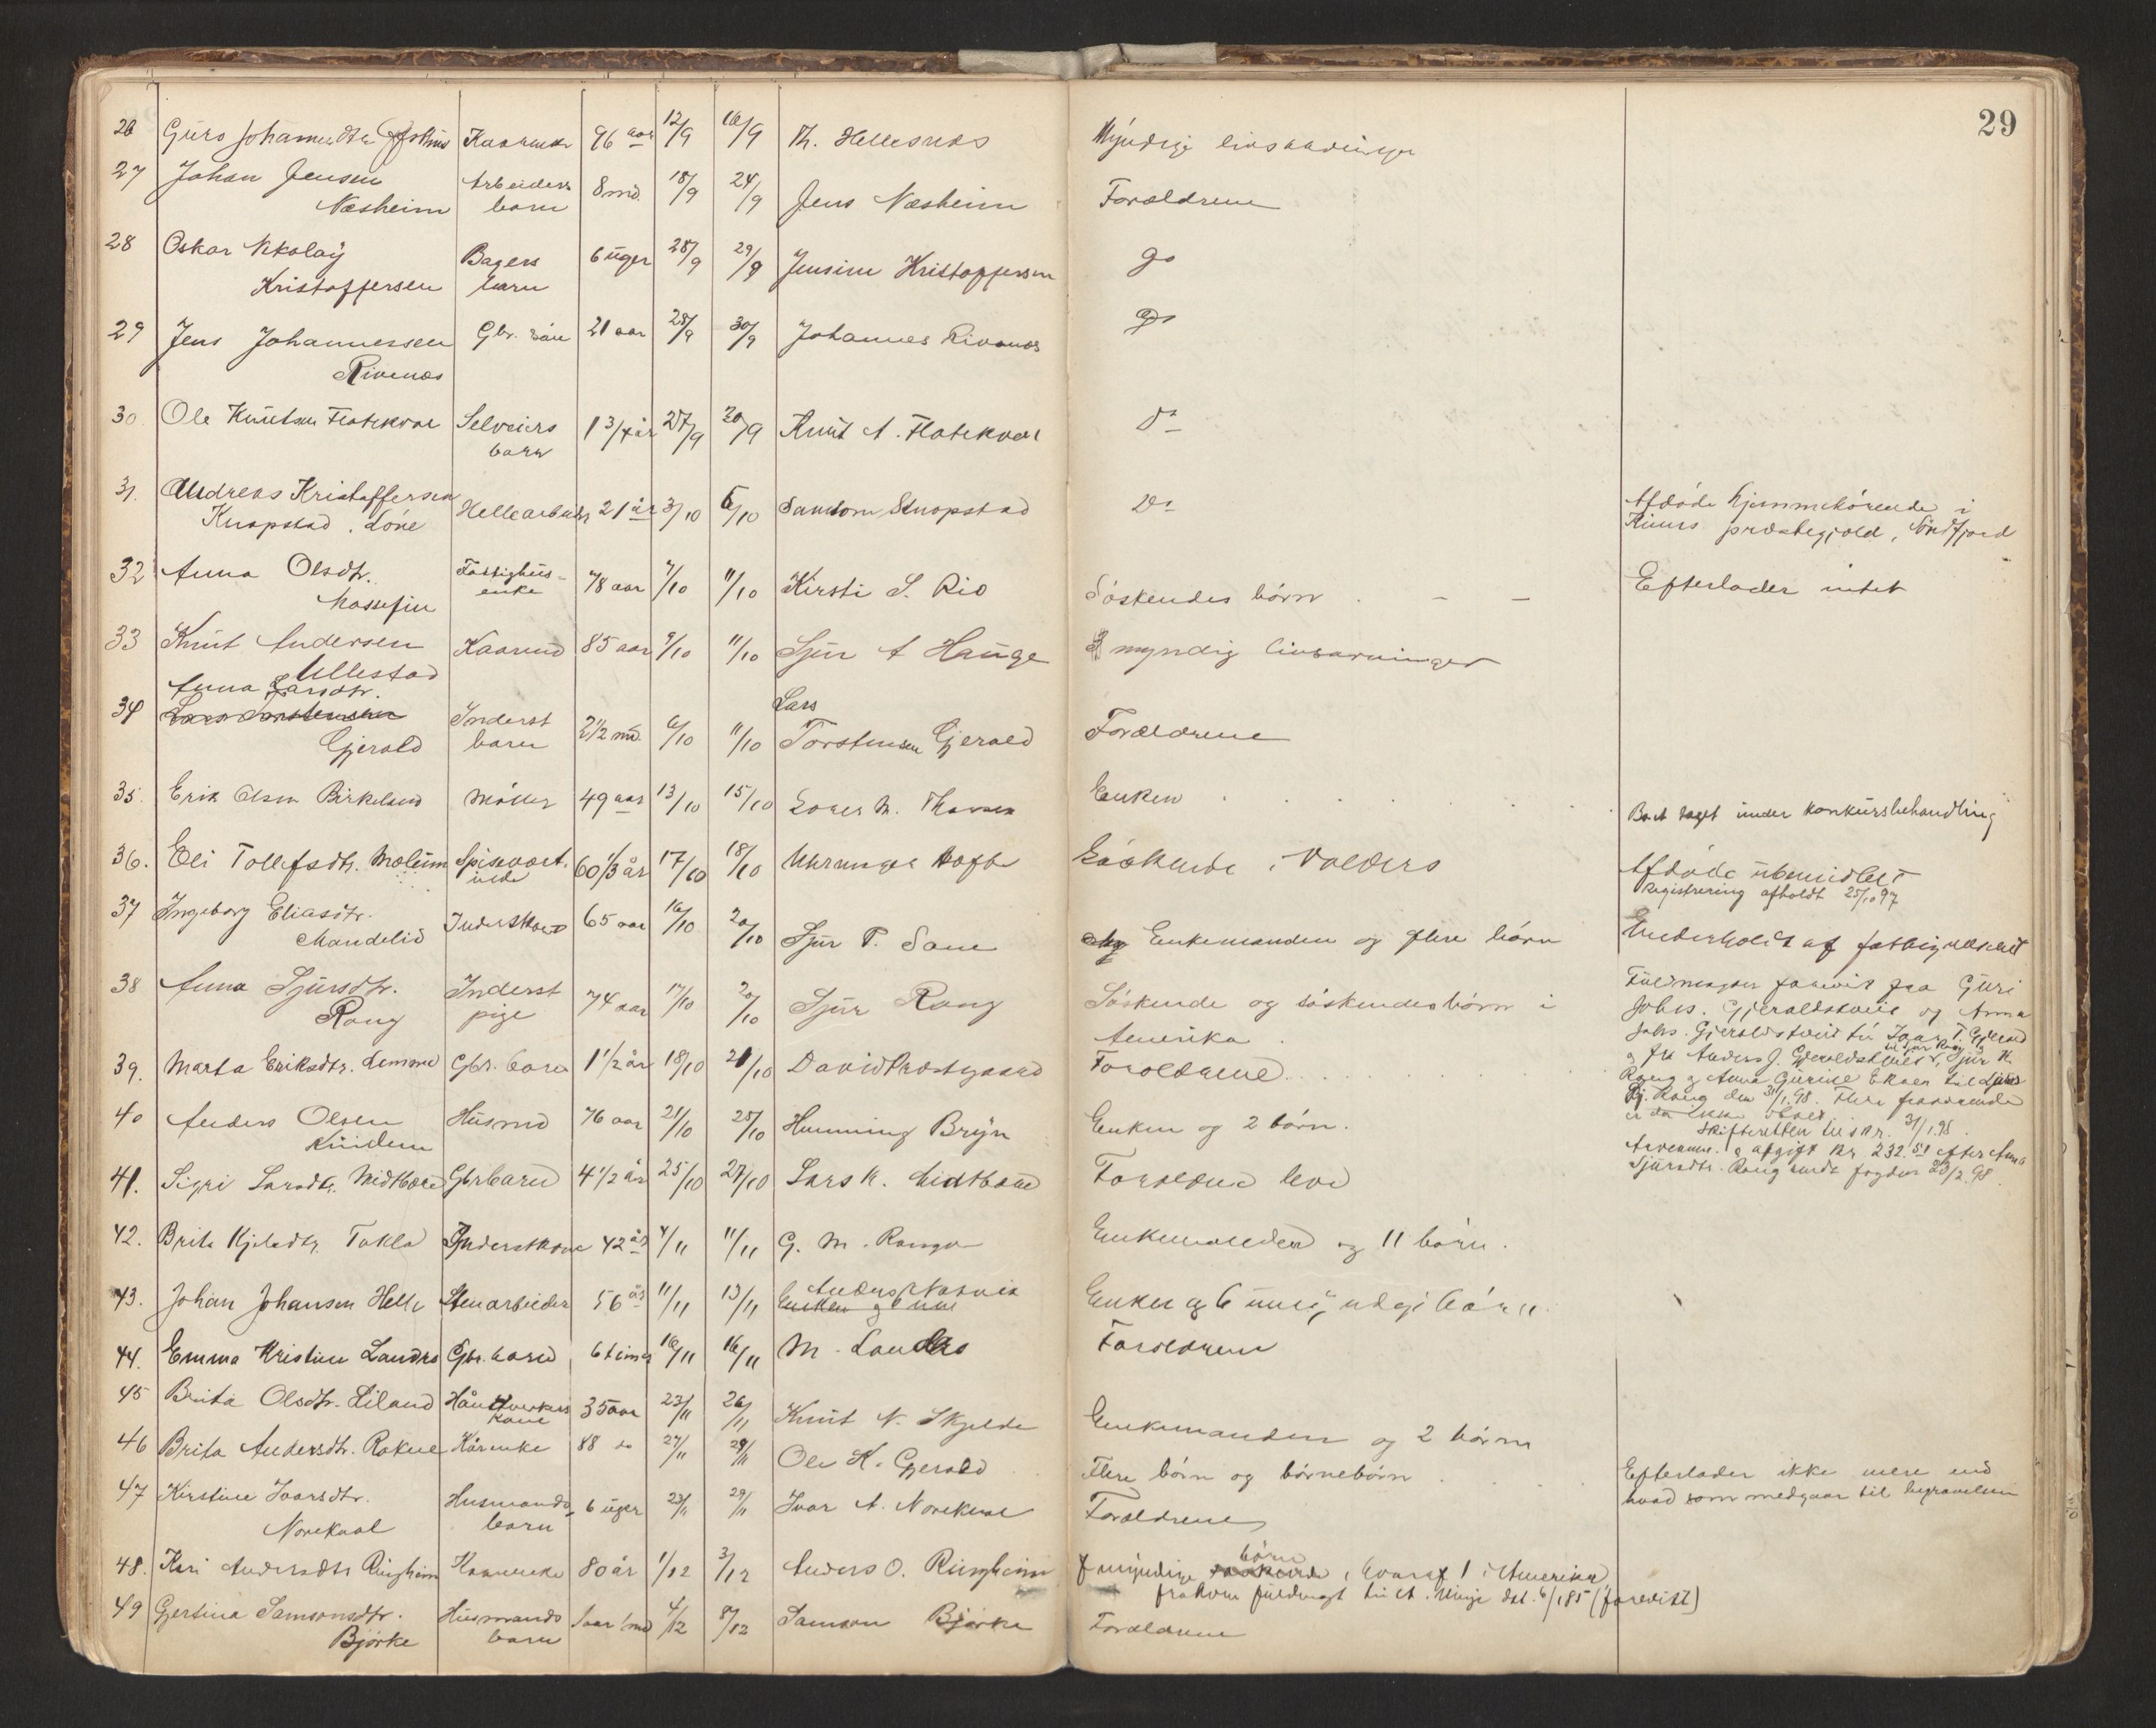 29
26 Guro Johannesdtr Kaarenke 96 aar 12/9 16/9 Th. Hellesnes Myndige livsarvinger
27 Johan Jensen Arbeiders 8 md. 18/9 24/9 Jens Næsheim Forældrene
Næsheim barn
28 Oskar Nikolay Bagers 6 uger 28/9 29/9 Jensine Kristoffersen Do
Kristoffersen barn
29 Jens Johannessen Gbr. søn 21 aar 28/9 30/9 Johannes Rivenæs Do
Rivenæs
30. Ole Knutsen Flatekval Selveiers 1 3/4 år 27/9 30/9 Knut A. Flatekval Do
barn
31. Andreas Kristoffersen Hellearbeider 21 år 3/10 5/10 Samson Knopstad Do Afdøde hjemmehørende i
Knapstad, Løne Kinns præstegjeld, Søndfjord
32 Anna Olsdtr. Fattighus- 78 aar 7/10 11/10 Kirsti S. Rio Søskendes børn . – – Efterlader intet
Mossefin enke
33 Knut Andersen Kaarmd 85 aar 9/10 11/10 Sjur A Hauge myndig livsarvinger
Ullestad
Anna Larsdtr. Lars
34 Lars Torstensen Inderst 2 1/2 md. 6/10 11/10 Torstensen Gjerald Forældrene
Gjerald barn
35. Erik Olsen Birkeland Møller 49 aar 13/10 15/10 M. Thorsen Enken Boet taget under konkursbehandling
36. Eli Tollefsdtr. Mælum Spisevært- 60 1/3 år 17/10 18/10 Søskende i Valders Afdøde ubemidlet
inde Registrering afholdt 25/10 97
37 Ingeborg Eliasdtr. Inderstkone 65 aar 16/10 20/10 Sjur T. Saue Enkemanden og flere børn Underholdt af fattigvæsenet
Mandelid
38 Anna Sjursdtr. Inderst 74 aar 17/10 20/10 Sjur Rong Søskende og søskendesbørn i Fuldmagter forevist fra Guri
Rong pige Amerika. Johs. Gjeraldstveit og Anna
Johs. Gjeraldstveit til Ivar T. Gjerald
til Sjur Rong
og fra Anders J. Gjeraldstveit, Sjur K.
Rong og Anna Gurine Ekaer til Sjur
Rong den 31/1.98. Flere fraværende
er der ikke
Skifteretten 31/1.98.
afgift Kr. 232.51 efter Anna
Sjursdtr. Rong sendt fogden 23/2.98.
39. Marta Eriksdtr. Lemme Gbr. barn 1 1/2 år 18/10 21/10 David Præstgaard Forældrene
40 Anders Olsen Husmd 76 aar 21/10 25/10 Henning Bryn Enken og 2 børn.
Kinden
41. Sigri Larsdtr. Midtbøen Gbrbarn 4 1/2 år 25/10 27/10 Lars K. Midtbøen Forældrene leve
42. Brita Kjelsdtr. Takla Inderstkone 42 år 4/11 11/11 G. M. Rongve Enkemanden og 11 børn.
43. Johan Johansen Helle Stenarbeider 56 år 11/11 13/11 Anders Enken og 6 umyndige børn
Enken og 6 um
44. Emma Kristine Landro Gbr. barn 6 timer 16/11 16/11 M. Landro Forældrene
45 Brita Olsdtr. Liland Håndtverkers 35 aar 23/11 26/11 Knut N. Skjelde Enkemanden og 2 børn
kone
46 Brita Andersdtr. Rokne Kårenke 88 do 27/11 29/11 Ole K. Gjerald Flere børn og børnebørn Efterlader ikke mere end
hvad som medgaar til begravelsen
47 Kirstine Ivarsdtr. Husmands- 6 uger 23/11 29/11 Ivar A. Norekval Forældrene
Norekval barn
48. Kari Andersdtr. Ringheim Kaarenke 80 år 1/12 3/12 Anders O. Ringheim myndige søskende børn, hvoraf 1 i Amerika
frahvem fuldmagt til A. dat. 6/1 85 (forevist)
49 Gertina Samsonsdtr. Husmands 1 aar 1 md 4/12 8/12 Samson Bjørke Forældrene
Bjørke barn